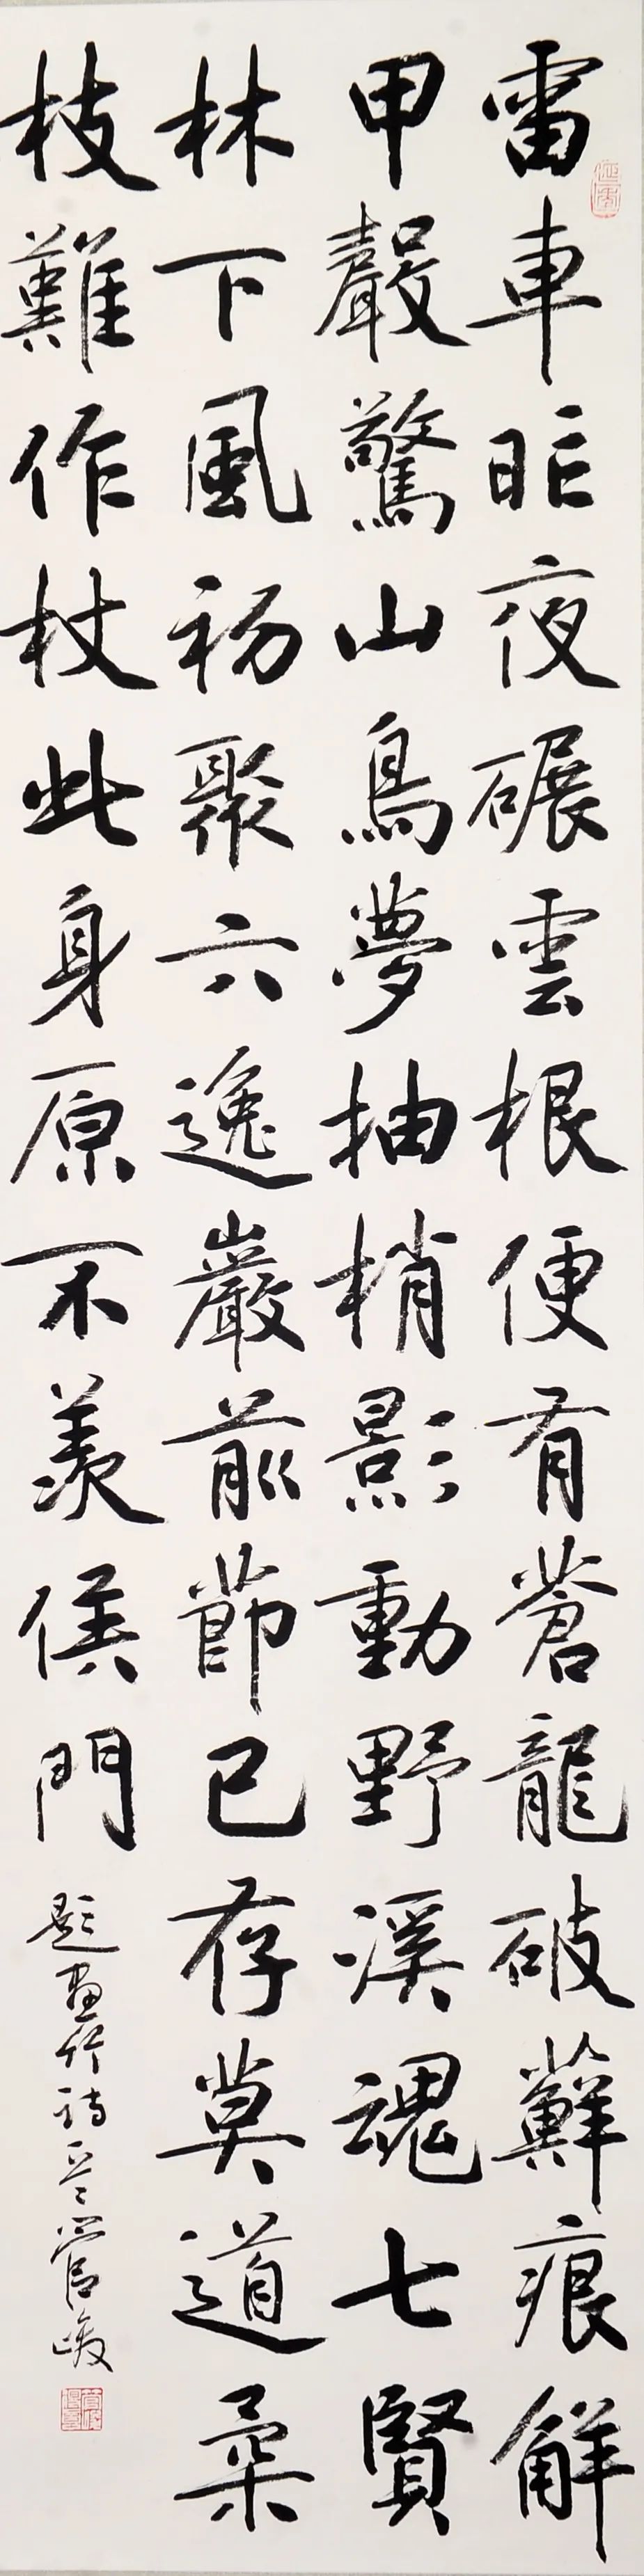 雷車昨夜碾雲根便有蒼龍破蘚痕解
甲聲驚山鳥夢抽梢影動野溪魂七賢
林下風初聚六逸巖前節已存莫道柔
枝難作杖此身原不羨侯門
題畫竹詩一首管峻